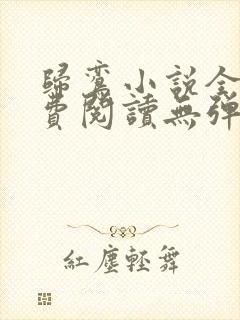 歸鸞小說全
費閱讀無彈
紅塵輕舞